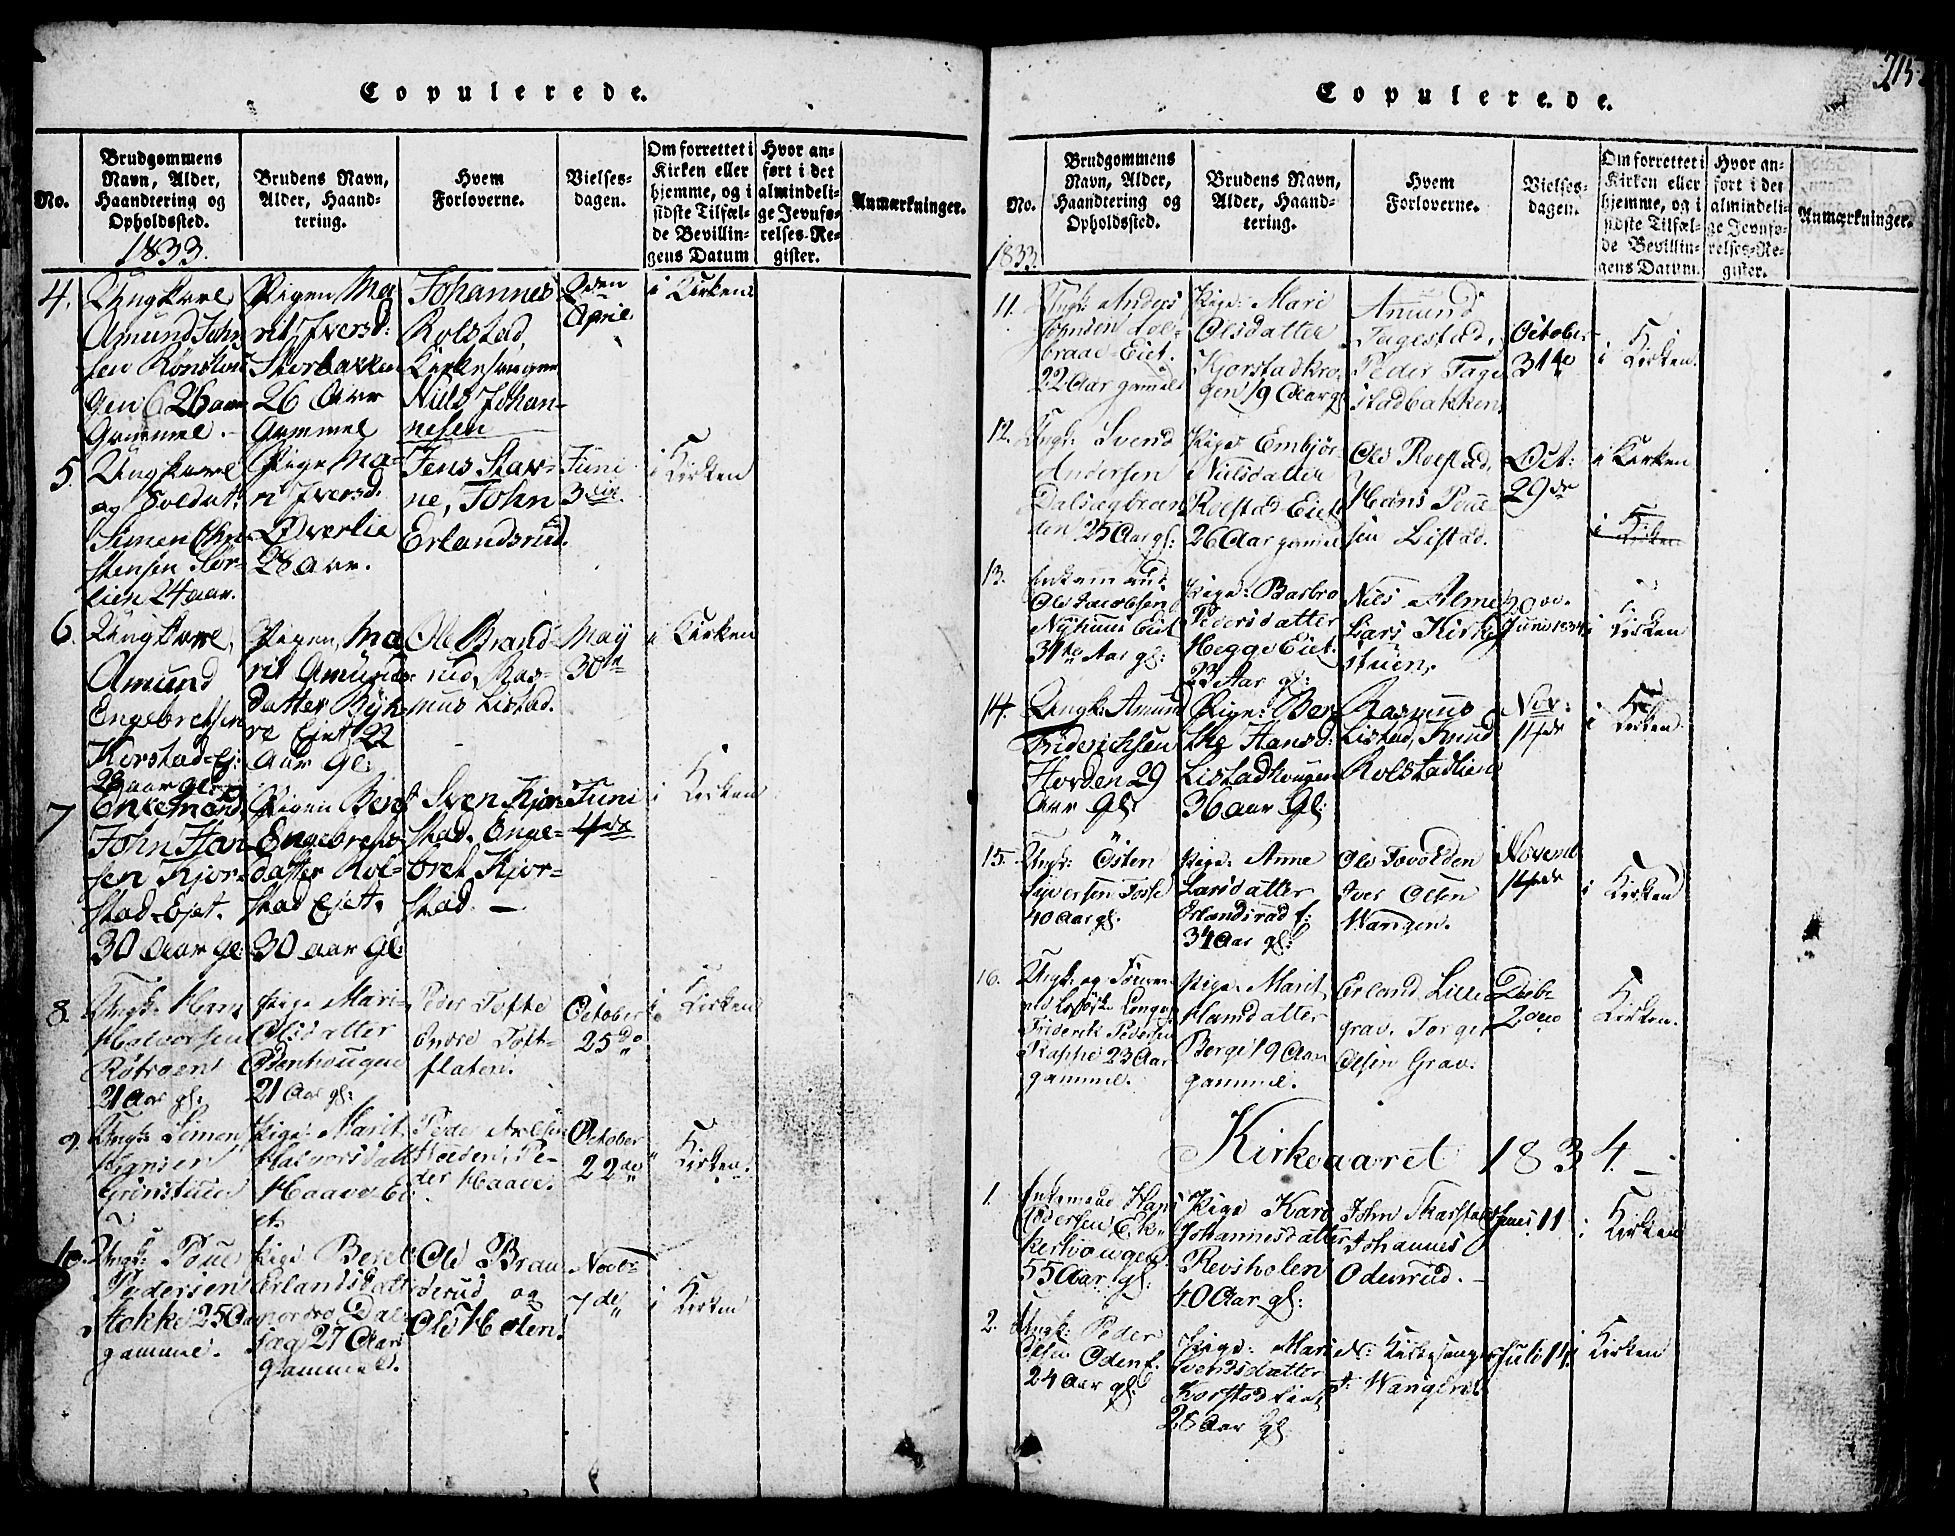 Copulerede.
No.
Brudgommens
Navn, Alder,
Haandtering og
Opholdssted.
1833.
Brudens Navn,
Alder, Haand-
tering.
Hvem
Forloverne.
Vielses-
dagen.
Om forrettet i
Kirken eller
hjemme, og i
sidste Tilfæl-
de Bevillin-
gens Datum
Hvor an-
ført i det
almindeli-
ge Jevnfø-
relses-Re-
gister.
Anmærkninger.
4.
Ungkarl
Amund John
sen
Gen 26 aar
Gammel.
Pigen Ma
rit Iversd:
Storbakken
26 Aar
Gammel
Johannes
Rolstad,
Kirkesanger
Niels Johan-
nesen
2den
April
i Kirken
5.
Ungkarl
og Soldat
Simen Chri
stensen Stor-
lien 24 aar.
Pige Ma-
rit Iversd.
Øverlie
28 Aar.
Jens Stav-
ne, John
Erlandsrud.
Juni
3die
i Kirken
6.
Ungkarl,
Amund
Engebretsen
Korstad-Ej:
28 aar gl:
Pigen, Ma
rit Amunds
datter Ryk
re Ejet 22
Aar Gl:
Ole Brand-
rud, Ras-
mus Listad.
May
30te
i Kirken
7
Enkemand,
John Han
sen Kjor-
stad-Ejet.
30 Aar gl:
Pigen Beret
Engebrets-
datter Rol-
stad Ejet.
30 aar Gl:
Sven Kjor-
stad. Enge-
bret Kjor-
stad. —
Juni
4de
i Kirken
8.
Ungk: Hans
Halvorsen
Rötroen
21 Aar gl:
Pige Mari
Olsdatter
Odenhougen
21 Aar gl:
Peder Tofte
Endre Toft-
flaten.
October
25de
i Kirken
9.
Ungk: Simen
Hansen
Grinstuen
Pige: Marit
Halvorsdatt
Haave Ei
et.
Peder
Hoeden, Pe-
der Haave.
October
22de
" Kirken.
10.
Ungk: Poul
Pedersen
Stokke 25 Aar
gammel.
Pige Beret
Erlandsdatt
nordre Dal
sag 27 Aar
gammel.
Ole Bran
derud og
Ole Holen.
Novbr
7de
i Kirken
Copulerede.
215.
No.
1833.
Brudgommens
Navn, Alder,
Haandtering og
Opholdssted.
Brudens Navn,
Alder, Haand-
tering.
Hvem
Forloverne.
Vielses-
dagen.
Om forrettet i
Kirken eller
hjemme, og i
sidste Tilfæl-
de Bevillin-
gens Datum.
Hvor an-
ført i det
almindeli-
ge Jevnfø-
relses-Re-
gister.
Anmærkninger.
11.
Ungk: Anders
Johnsen Sol-
braae-Eiet.
22 Aar gammel
Pige: Mari
Olsdatter
Kjorstadkro-
gen 19 Aar gl
Amund
Fagestad,
Peder Fage
stadbakken
October
31te
i Kirken.
12.
Ungk: Svend
Andersen
Dalsagbraen
den 25 Aar gl:
Pige Embjør
Nielsdatter
Rolstad Eiet
26 Aar gammel
Ole Rolstad,
Hans Poul
sen Listad.
Oct:
29de
i Kirken
i Kirken
13.
Enkemand
Ole Jacobsen
Nyhuus Eiet
31te Aar gl:
Pige: Barbro
Pedersdatter
Hegge Eiet.
23 Aar gl:
Nils Alme
Lars Kirke
stuen,
Juni 1834
i Kirken
14.
Ungk: Amund
Friderichsen
Horden 29
Aar Gl:
Pige: Ber
the Hansd:
Listadhougen
36 aar Gl:
Rasmus
Listad, Knud
Rolstadlien
Nov:
14de
i Kirken
15.
Ungk: Östen
Syversen Fosse
40 Aar gl.
Pige: Anne
Larsdatter
Erlandsrud f:
34 Aar gl:
Ole Tovolden
Iver Olsen
Wangen.
Novemb
14de
i Kirken
16.
Ungk: og
Friderik Pedersen
23 Aar
gammel.
Pige: Marit
Hansdatter
Berge 19 Aar
gammel.
Erland Lille
grav. Torger
Olsen Grav.
Decb:
2den
i Kirken.
Kirkeaaret 1834. —
1.
Enkemand Hans
Pedersen Ek-
kerhougen
55 Aar gl:
Pige Kari
Johannesdatter
Revsholen
40 Aar gl:
John Skarstad
Johannes
Odenrud. —
Juni 11
i Kirken
2.
Ungk: Peder
Olsen Oden f.
24 Aar gl:
Pige: Mari
Svendsdatter
Korstad Eiet
28 Aar gl
N: Kirkesanger
P: Wangen
Juli 11
i Kirken